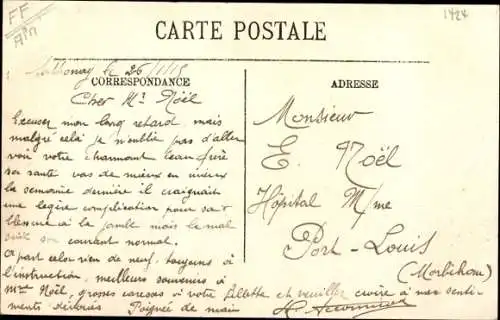 FF
1424
CARTE POSTALE
le 26/1/15
CORRESPONDANCE
ADRESSE
Cher Mr Noël
Excuser mon long retard, mais
malgré celà je n'oublie pas d'aller
voir votre charmant beau frère
sa santé vas de mieux en mieux
la semaine dernière il craignait
une legère complication pour sa
blessure à la jambe mais le mal
suit son courant normal.
A part celà rien de neuf, toujours à
l'instruction, meilleurs souvenirs à
Mme Noël, grosses caresses à votre fillette et veuillez croire à mes senti-
ments dévoués Poignée de main
Monsieur
E. Noël
Hôpital M/me
Port-Louis
(Morbihan)